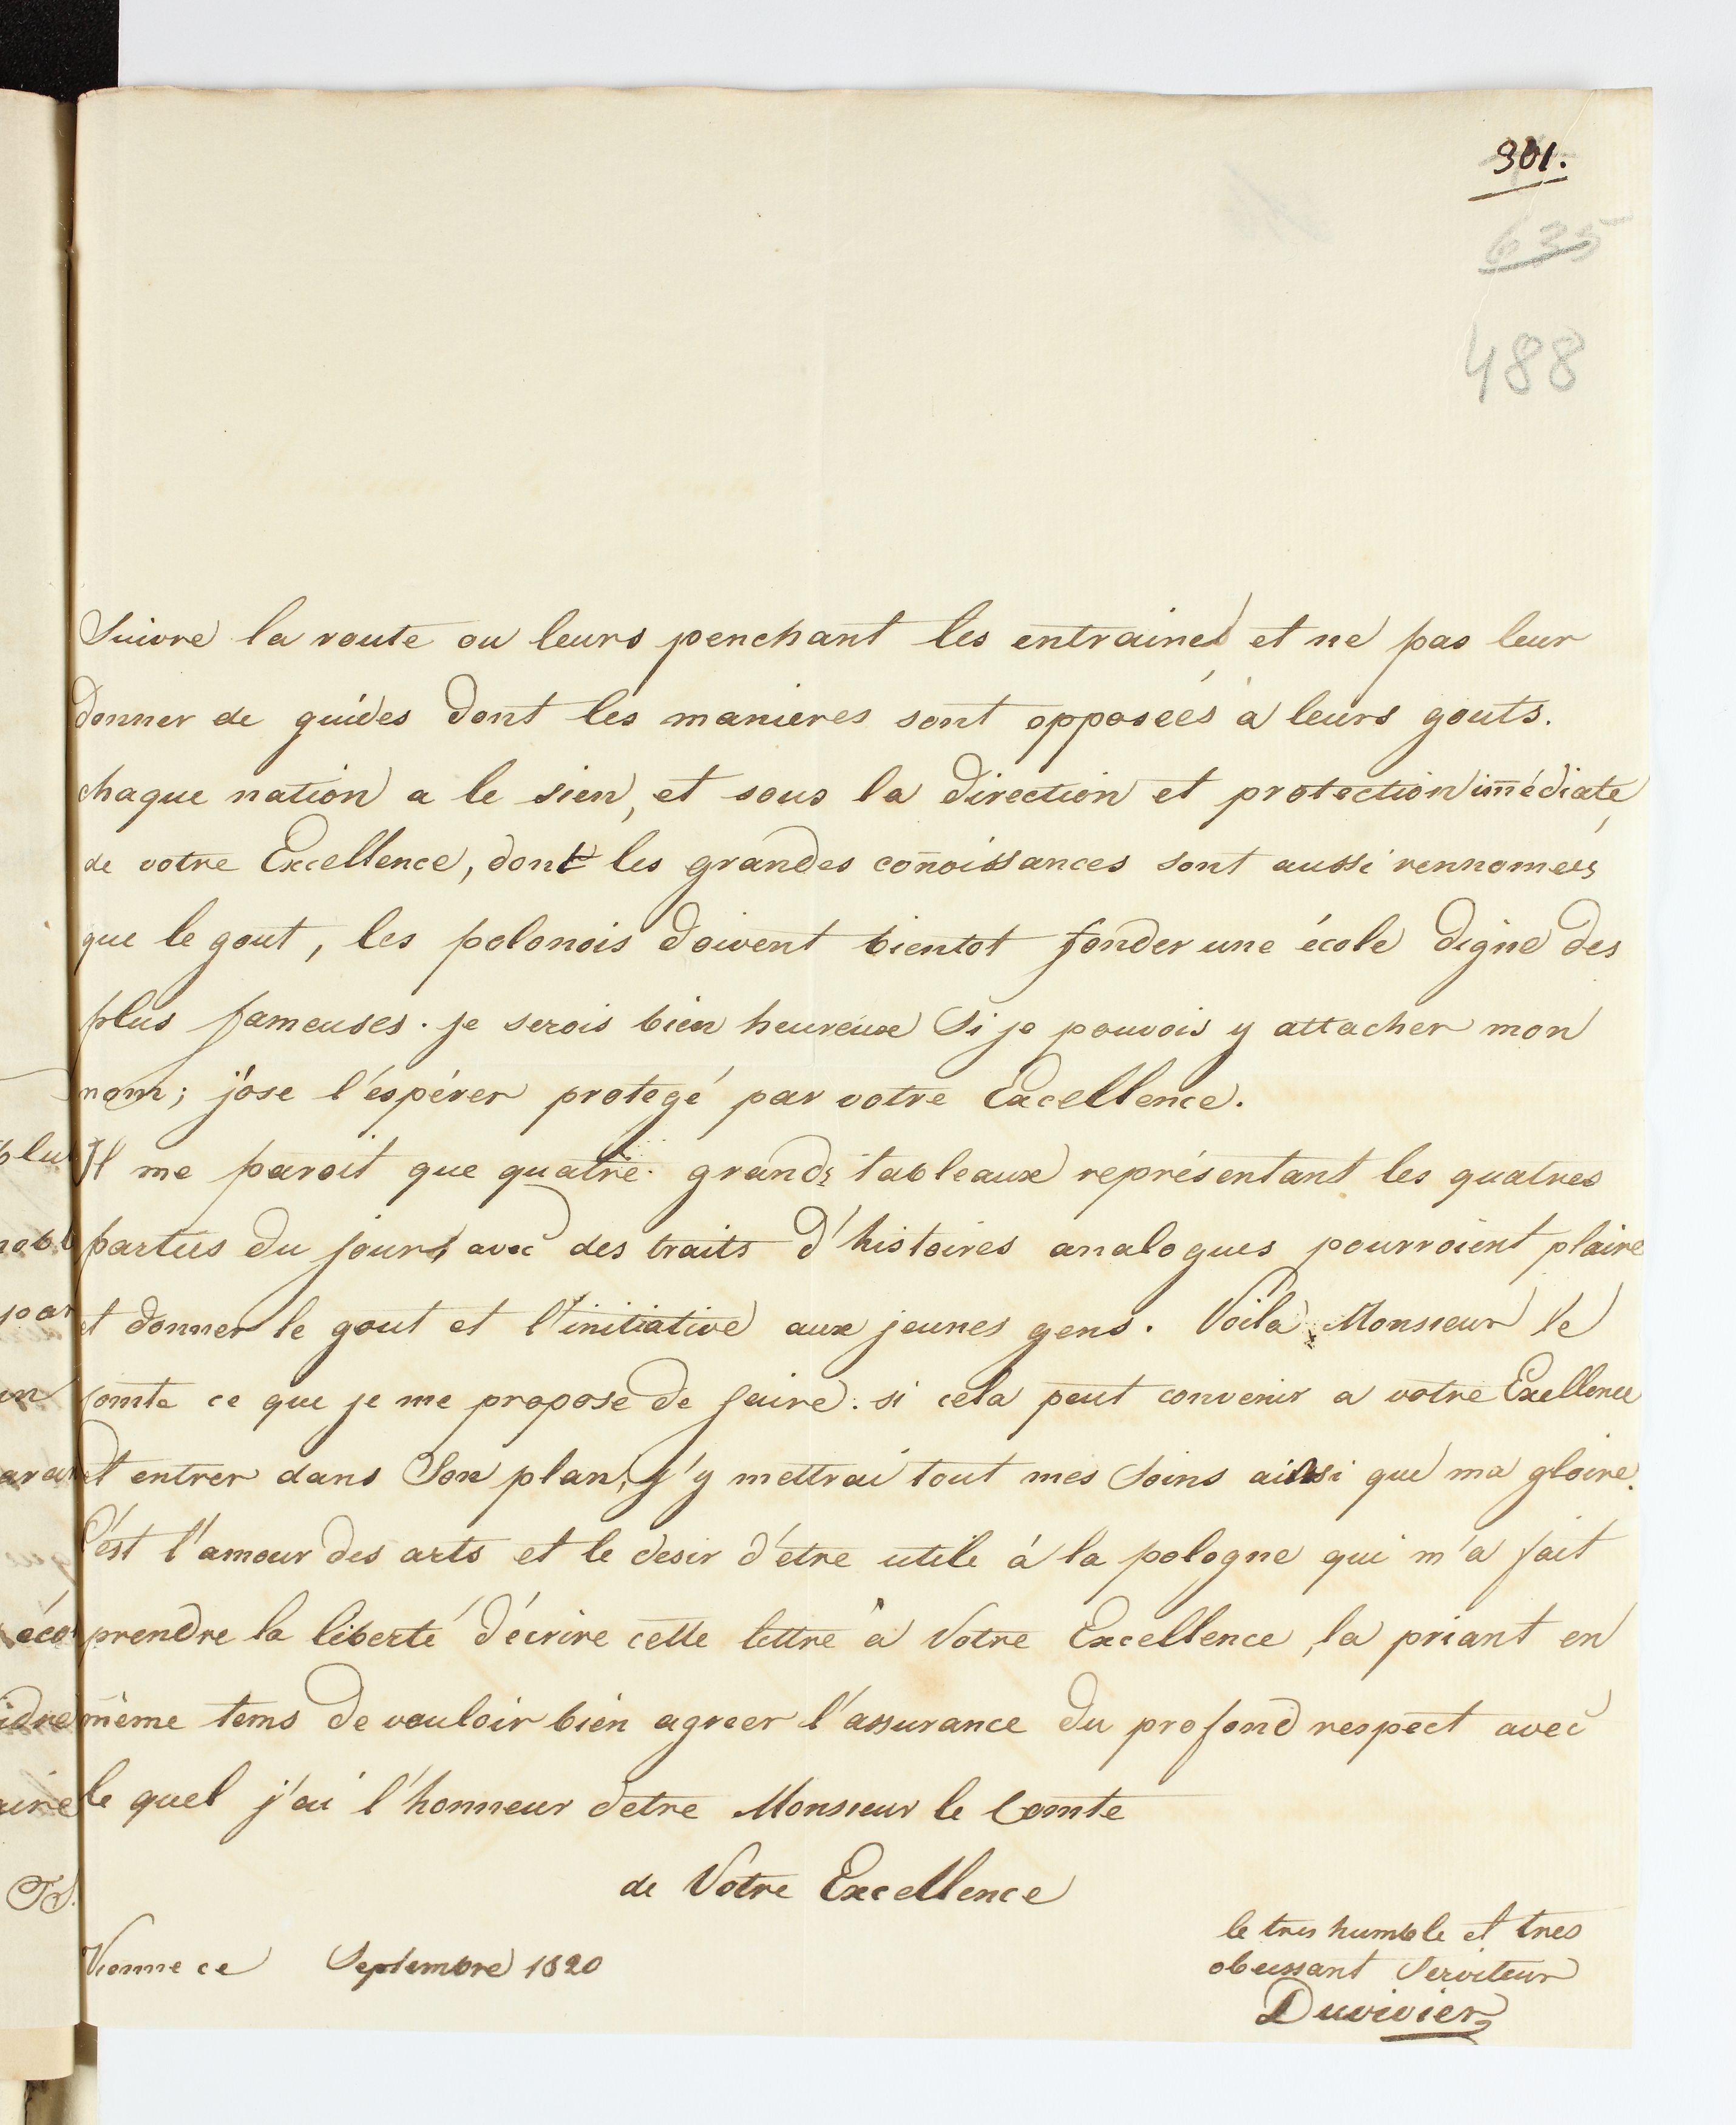 301.
635
488
Suivre la route ou leurs penchant les entraines et ne pas leur
donner de guides dont les manieres sont opposeés à leurs gouts.
chaque nation a le sien, et sous la direction et protection im̄édiate
de votre Excellence, dont les grandes con̄oissances sont aussi rennomeés
que le gout, les polonois doivent bientot fonder une école digne des
plus fameuses. je serois bien heureux Si je pouvois y attacher mon
nom; j'ose l'espérer protegé par votre Excellence.
Il me paroit que quatre grands tableaux représentant les quatres
parties du jours avec des traits d'histoires analogues pourroient plaire
et donner le gout et l'initiative aux jeunes gens. Voila Monsieur le
comte ce que je me propose de faire. si cela peut convenir a votre Excellence
et entrer dans Son plan, j'y mettrai tout mes Soins ainsi que ma gloire.
C'ést l'amour des arts et le desir d'étre utile à la pologne qui m'a fait
prendre la liberté d'écrire cette lettre à Votre Excellence, la priant en
même tems de vouloir bien agreer l'assurance du profond respect avec
le quel j'ai l'honneur detre Monsieur le Comte
de Votre Excellence
le tres humble et tres
obeissant Serviteur
Duvivier
Vienne ce Septembre 1820